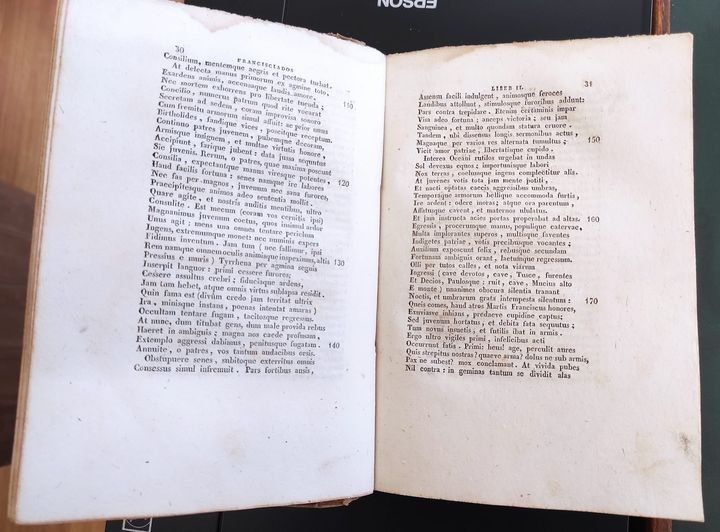 EPSON
30 FRANCISCIADOS
Consilium, mentemque aegris et pectora turbat.
At delecta manus primorum ex agmine toto,
Exardens animis, accensaque laudis amore,
Nec mortem exhorrens pro libertate tuenda; 110
Concilio, numerus patrum quod rite vocarat
Secretam ad sedem, coram improvisa sonoro
Cum fremitu armorum simul affuit: se prior unus
Birtholides, fandique vices, poscitque receptum.
Continuo patres juvenem, pubemque decoram,
Armisque insignem, et multae virtutis honore,
Accipiunt, farique jubent: data jussa sequuntur
Sic juvenis. Rerum, o patres, quae maxima poscunt
Consilia, expectantque manus viresque potentes, 120
Haud facilis fortuna: senes namque ire labores
Nec fas per magnos, juvenum nec sana furores,
Praecipitesque animos adeo sententia mollit.
Quare agite, et nostris auditis mentibus, ultro
Consulite. Est mecum (coram vos cernitis ipsi)
Magnanimus juvenum coetus, quos insimul ardor
Unus agit: mens una omnes tentare periclum
Ingens, extremumque monet: nec numinis expers
Fidimus inventum. Jam tum (nec fallimur, ipsi
Rem namque omnem oculis animisque inspeximus, altis 130
Pressius e muris) Tyrrhena per agmina segnis
Inserpit languor: primi cessere furores,
Cessere assultus crebri; fiduciaque ardens,
Jam tum hebet, atque omnis virtus sublapsa residit.
Quin fama est (divûm credo jam territat ultrix
Ira, minisque instans, poenas intentat amaras)
Occultam tentare fugam, tacitosque regressus.
At nunc, dum titubat gens, dum male provida rebus
Haeret in ambiguis; magna nos caede profusam,
Extemplo aggressi dabimus, penitusque fugatam. 140
Annuite, o patres, vos tantum audacibus ocsis.
Obstupuere senes, subitoque exterritus omnis
Consessus simul infremuit. Pars fortibus ausis,
LIBER II. 31
Assensu facili indulgent, animosque feroces
Laudibus attollunt, stimulosque furoribus addunt:
Pars contra trepidare. Etenim certaminis impar
Visa adeo fortuna; anceps victoria; seu jam
Sanguinea, et multo quondam statura cruore.
Tandem, ubi dissensu longis sermonibus actus,
Magnaque per varios res alternata tumultus; 150
Vicit amor patriae, libertatisque cupido.
Interea Oceani rutilos urgebat in undas
Sol devexus equos; importunisque labori
Nox terras, coelumque ingens complectitur alis.
At juvenes votis tota jam mente potiti,
Et nacti optatas caecis aggressibus umbras,
Temporaque armorum bellique accommoda furtis,
Ire ardent: odere moras; atque ora parentum,
Affatusque cavent, et maternos ululatus.
Et jam instructa acies portas properabat ad altas. 160
Egressis, procerumque manus, populique catervae,
Multa implorantes superos, multosque faventes
Indigetes patriae, votis precibusque vocantes;
Auxilium exposcunt felix, rebusque secundam
Fortunam ambigais orant, laetumque regressum.
Olli per tutos calles, et nota viarum
Ingressi (cave devotos, cave, Tusce, furentes
Et Decios, Paulosque: ruit, cave, Mucius alto
E monte) unanimes obscura silentia tranant
Noctis, et umbrarum gratis intempesta silentum: 170
Queis comes, haud atros Martis Franciscus honores,
Exuviasve inhians, praedaeve cupidine captus;
Sed juvenum hortatus, et debita fata sequutus;
Tum novus insuetis, et futilis ibat in armis.
Ergo ultro vigiles primi, infelicibus acti
Occurrunt fatis. Primi: heu! age, perculit aures
Quis strepitus nostras? quaeve arma? dolus ne sub armis,
Pax ne subest? mox conclamant. At vivida pubes
Nil contra: in geminas tantum se dividit alas